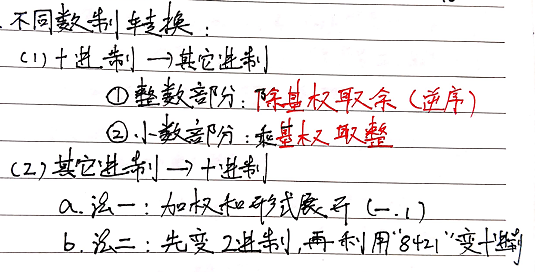 不同数制转换：
(1)十进制→其它进制
①整数部分：除基权取余(逆序)
②小数部分：乘基权取整
(2)其它进制→十进制
a.法一：加权和形式展开(一.1)
b.法二：先变2进制，再利用"8421"变十进制